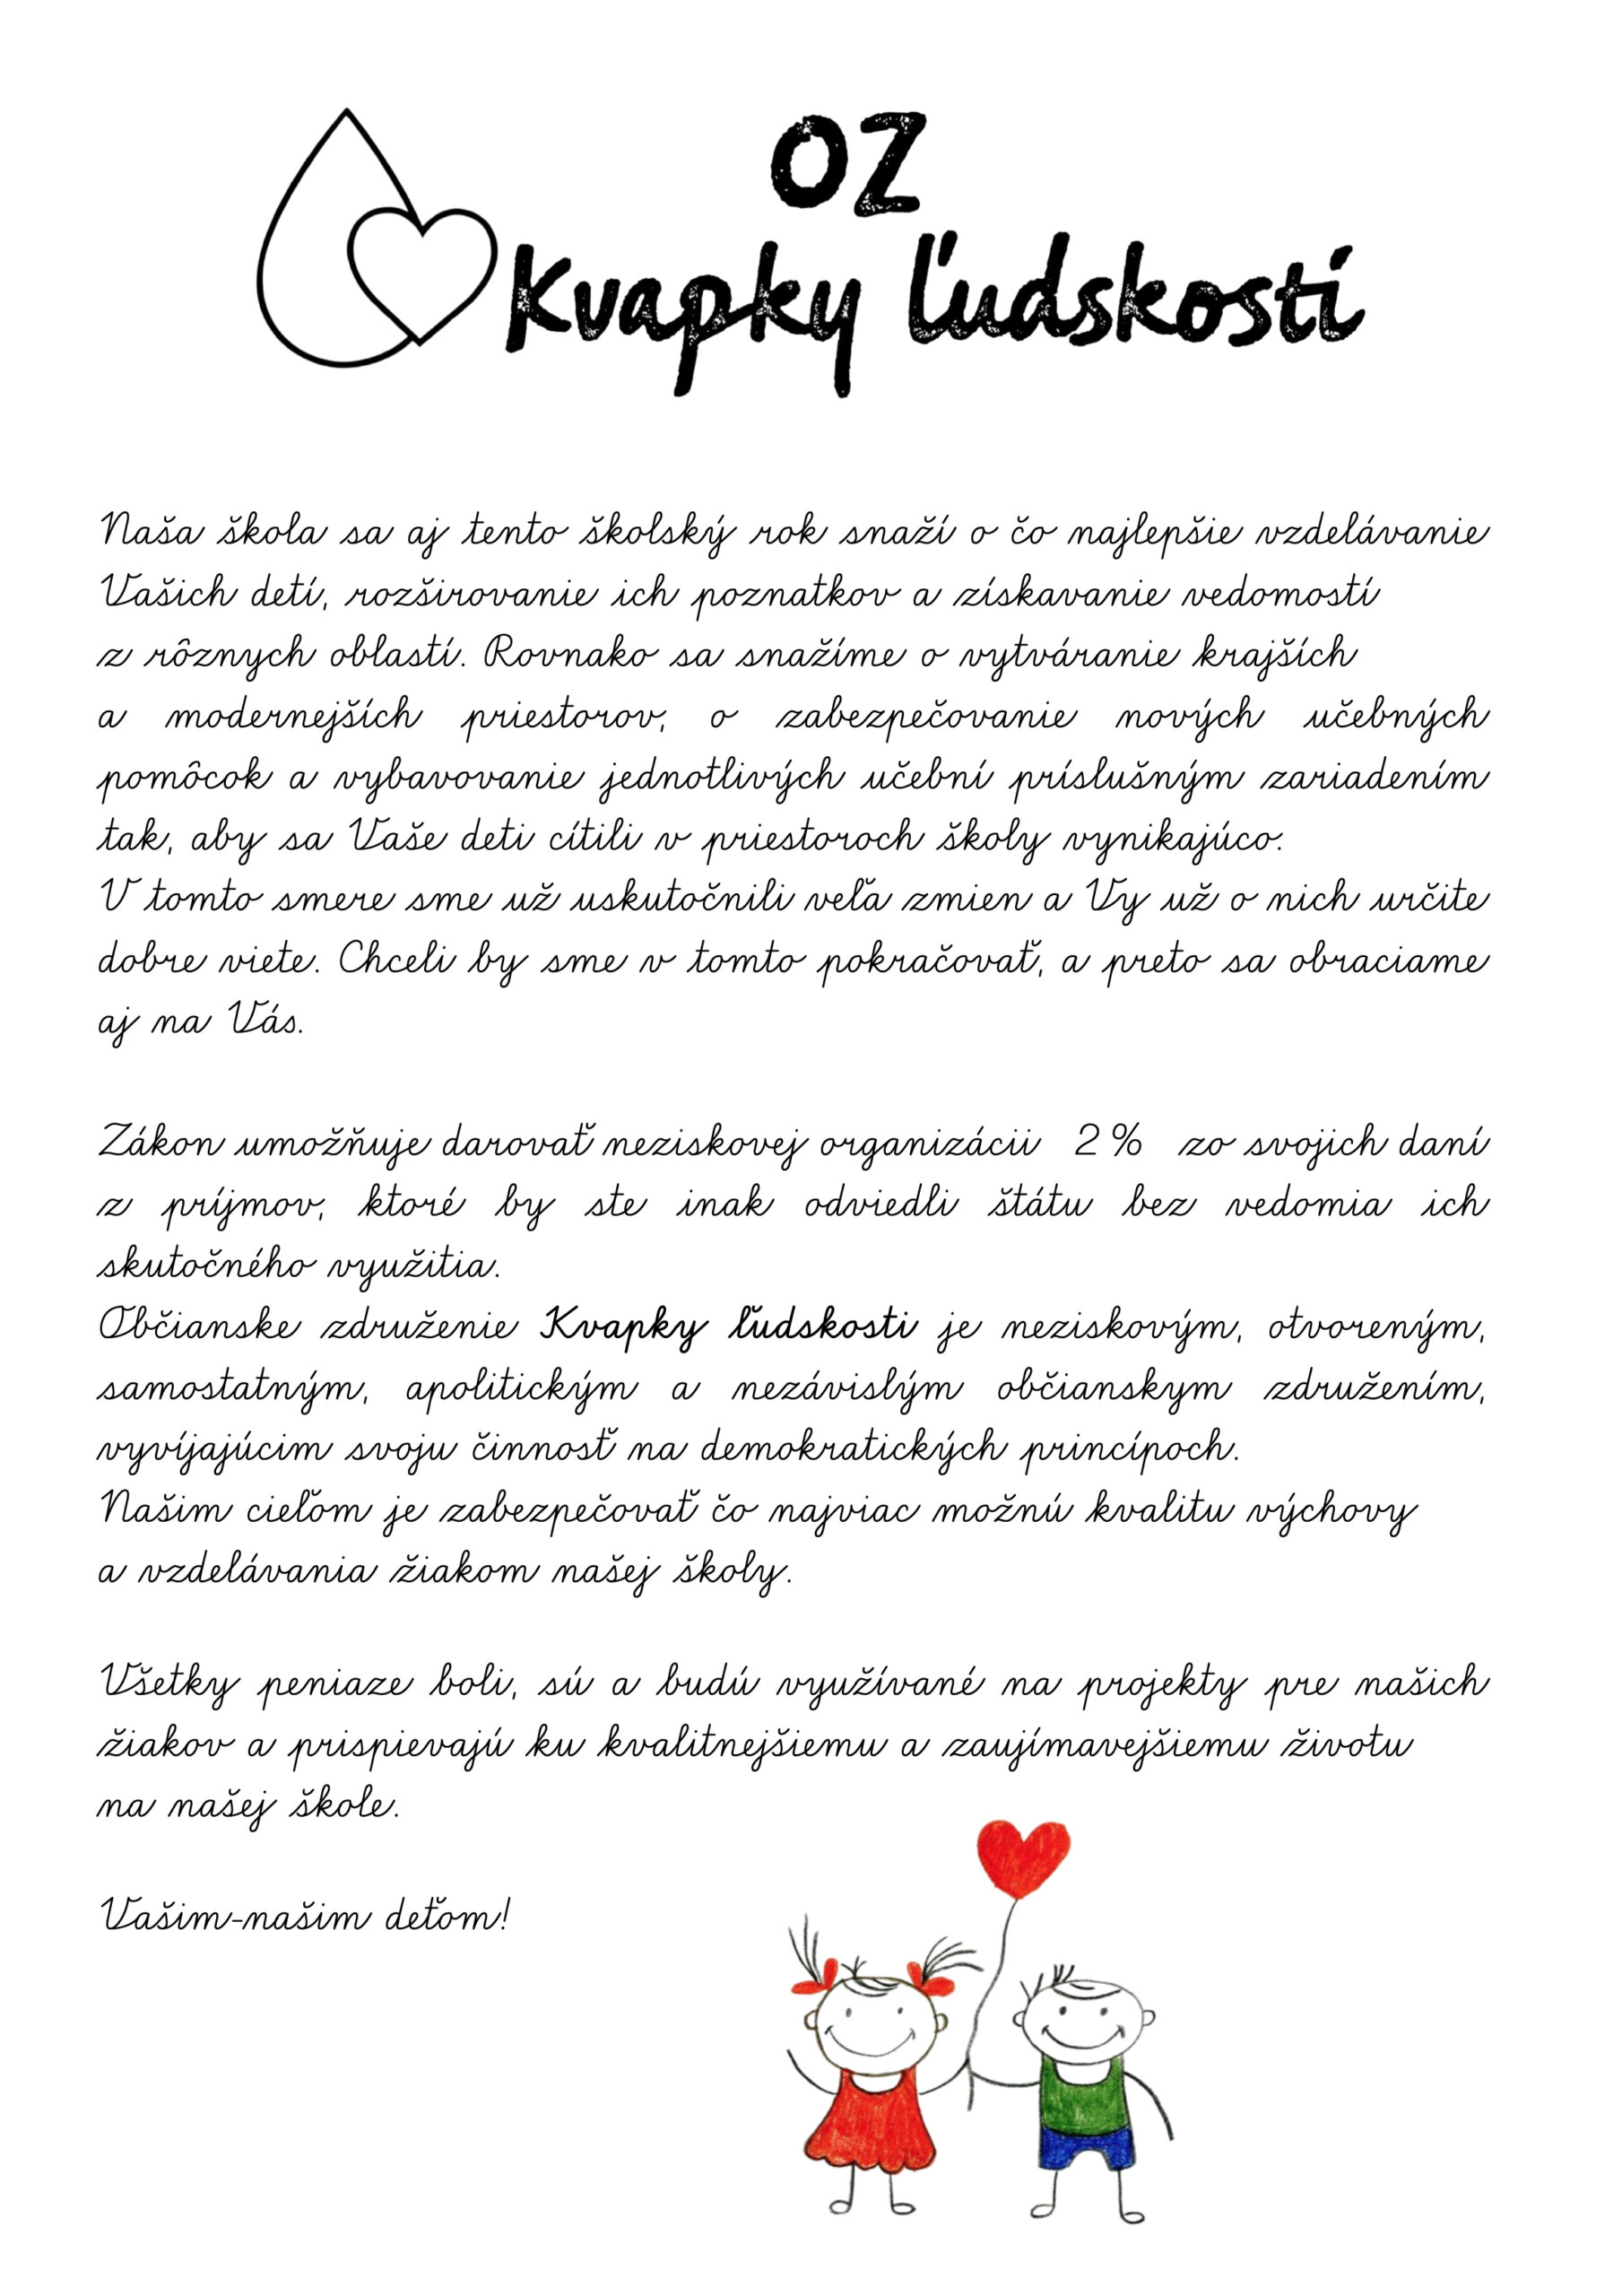 OZ
Kvapky ľudskosti
Naša škola sa aj tento školský rok snaží o čo najlepšie vzdelávanie
Vašich detí, rozširovanie ich poznatkov a získavanie vedomostí
z rôznych oblastí. Rovnako sa snažíme o vytváranie krajších
a modernejších priestorov, o zabezpečovanie nových učebných
pomôcok a vybavovanie jednotlivých učební príslušným zariadením
tak, aby sa Vaše deti cítili v priestoroch školy vynikajúco.
V tomto smere sme už uskutočnili veľa zmien a Vy už o nich určite
dobre viete. Chceli by sme v tomto pokračovať, a preto sa obraciame
aj na Vás.
Zákon umožňuje darovať neziskovej organizácii 2 % zo svojich daní
z príjmov, ktoré by ste inak odviedli štátu bez vedomia ich
skutočného využitia.
Občianske združenie Kvapky ľudskosti je neziskovým, otvoreným,
samostatným, apolitickým a nezávislým občianskym združením,
vyvíjajúcim svoju činnosť na demokratických princípoch.
Našim cieľom je zabezpečovať čo najviac možnú kvalitu výchovy
a vzdelávania žiakom našej školy.
Všetky peniaze boli, sú a budú využívané na projekty pre našich
žiakov a prispievajú ku kvalitnejšiemu a zaujímavejšiemu životu
na našej škole.
Vašim-našim deťom!